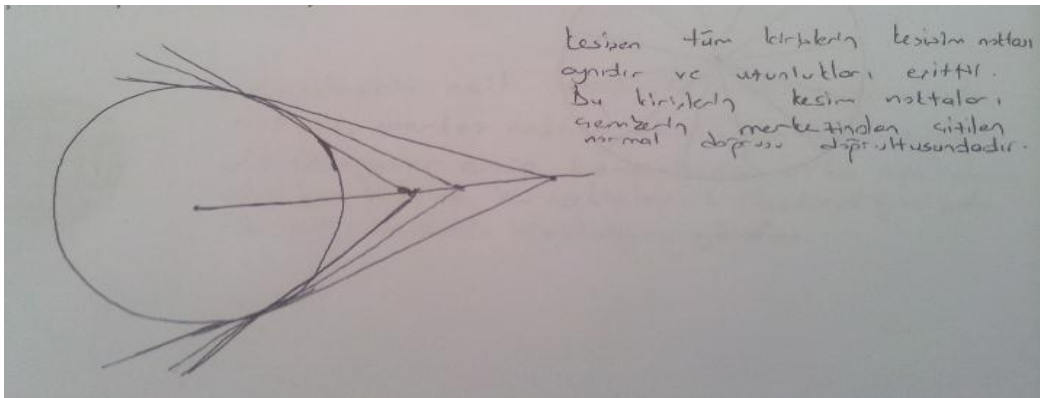 kesişen tüm kirişlerin kesişim noktası
aynıdır ve uzunlukları eşittir.
Bu kirişlerin kesim noktaları
çemberin merkezinden çizilen
normal doğrusu doğrultusundadır.